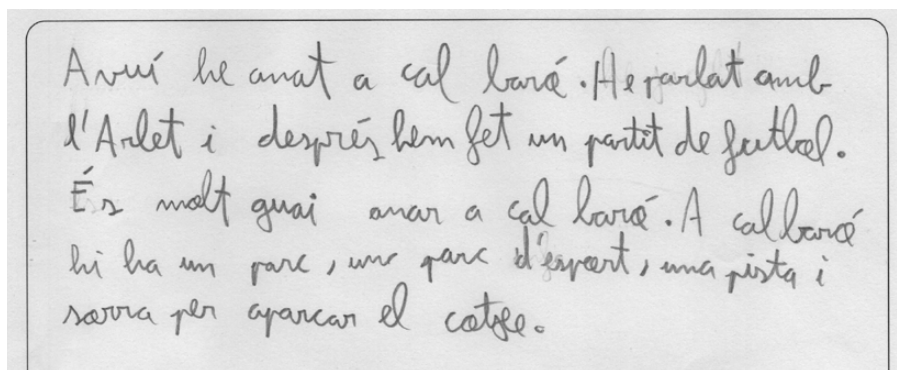 Avuí he anat a cal baró. He parlat amb
l'Arlet i després hem fet un partit de futbol.
És molt guai anar a cal baró. A cal baró
hi ha un parc, un parc d'esport, una pista i
sorra per aparcar el cotge.